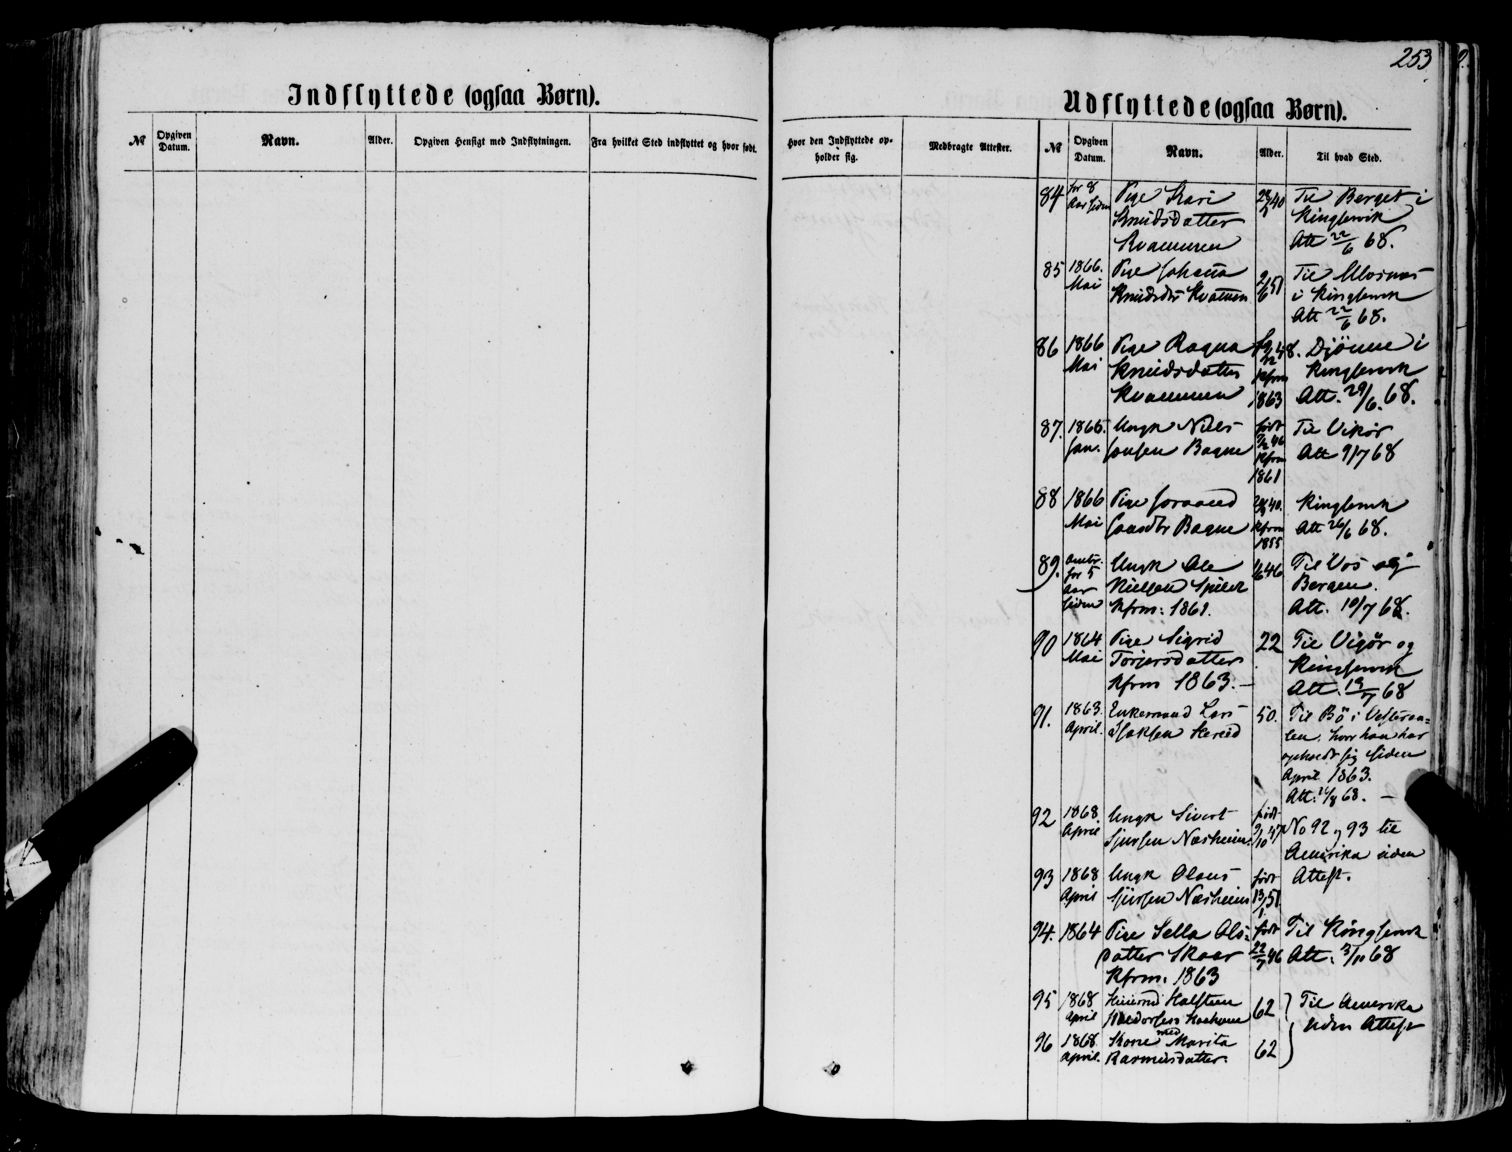 253
Indflyttede (ogsaa Børn).
Udflyttede (ogsaa Børn).
№
Opgiven Datum.
Navn.
Alder.
Opgiven Hensigt med Indflytningen.
Fra hvilket Sted indflyttet og hvor født.
Hvor den Indflyttede op-
holder sig.
Medbragte Attester.
№
Opgiven Datum.
Navn.
Alder.
Til hvad Sted.
84 for 8 Pige Kari 40 Til Berget i
Aar siden Knudsdatter Kingservik
Kvammen Att 22/6 68.
85 1866. Pige Johana 2/6 51 Til Alvsnæs
Mai Knudsdtr Kvamen i Kingservik
Att 22/6 68.
86 1866 Pige Ragna 48. Djönne i
Mai Knudsdatter Kfrm Kingservik
Kvammen 1863 Att. 29/6. 68.
87. 1866. Ungk Niels født Til Vikör
Jan. Jonsen Bagne 46 Att 9/7 68
Kfrm
1861
88 1866 Pige 40. Kingservik
Mai Bagne Kfrm Att 26/6 68.
1855
89. omtr. Ungk Ole 46 Til Vos og
for 5 Nielsen Bergen.
Aar Kfrm: 1861. Att. 10/7 68.
siden
90 1864 Pige Sigrid 22 Til Vigör og
Mai Torjersdatter Kingservik
Kfrm 1863. — Att. 13/7 68
91. 1863. Enkemand Lars 50. Til Bö i Vesteraa=
April. Isaksen len, hvor han har
opholdt sig siden
April 1863.
Att: 68. —
92 1868 Ungk Sivert født
April Sjursen Næsheim. 9/10 47 No 92 og 93 til
Amerika uden
93 1868 Ungk Olaus født Attest.
April Sjursen Næsheim 13/1 51
94. 1864 Pige Sella Ols= født Til Kingservik
datter Skaar 22/7 46 Att: 3/10 68
Kfrm: 1863
95 1868 Huusmd Halsten 62 Til Amerika
April uden Attest
96 1868 Kone med Marita 62
April. Rasmusdatter.